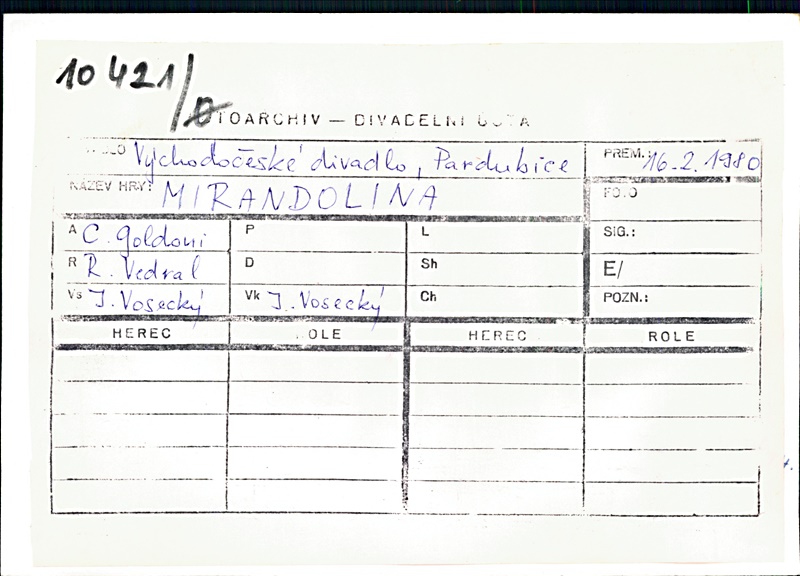 10 421/D
FOTOARCHIV — DIVADELNÍ ÚSTA
Východočeské divadlo, Pardubice PREM.: 16.2.1980
NÁZEV HRY: MIRANDOLINA FOTO
A C. Goldoni P L SIG.:
R R. Vedral D Sh E/
Vs J. Vosecký Vk J. Vosecký Ch POZN.:
HEREC ROLE HEREC ROLE